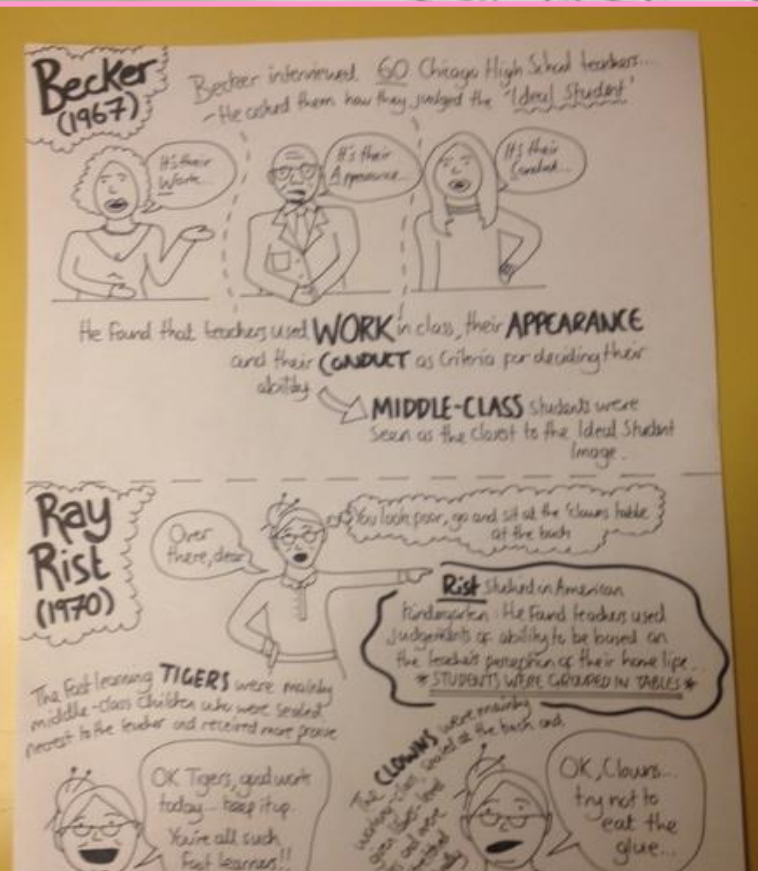 Becker
(1967)
Becker interviewed 60 Chicago High School teachers....
- He asked them how they judged the 'Ideal Student'
It's their
Work...
It's their
Appearance...
It's their
Conduct...
He found that teachers used WORK in class, their APPEARANCE
and their CONDUCT as Criteria for deciding their
ability
MIDDLE-CLASS students were
seen as the closest to the Ideal Student
Image.
Ray
Rist
(1970)
Over
there, dear
You look poor, go and sit at the Clowns table
at the back
Rist studied an American
Kindergarten. He found teachers used
judgements of ability to be based on
the teacher's perception of their home life...
* STUDENTS WERE GROUPED IN TABLES *
The fast learning TIGERS were mainly
middle-class children who were seated
nearest to the teacher and received more praise
The CLOWNS were mainly
working-class, seated at the back and
given lower-level
and were
OK Tigers, good work
today... keep it up.
You're all such
fast learners!!
OK, Clowns...
try not to
eat the
glue...